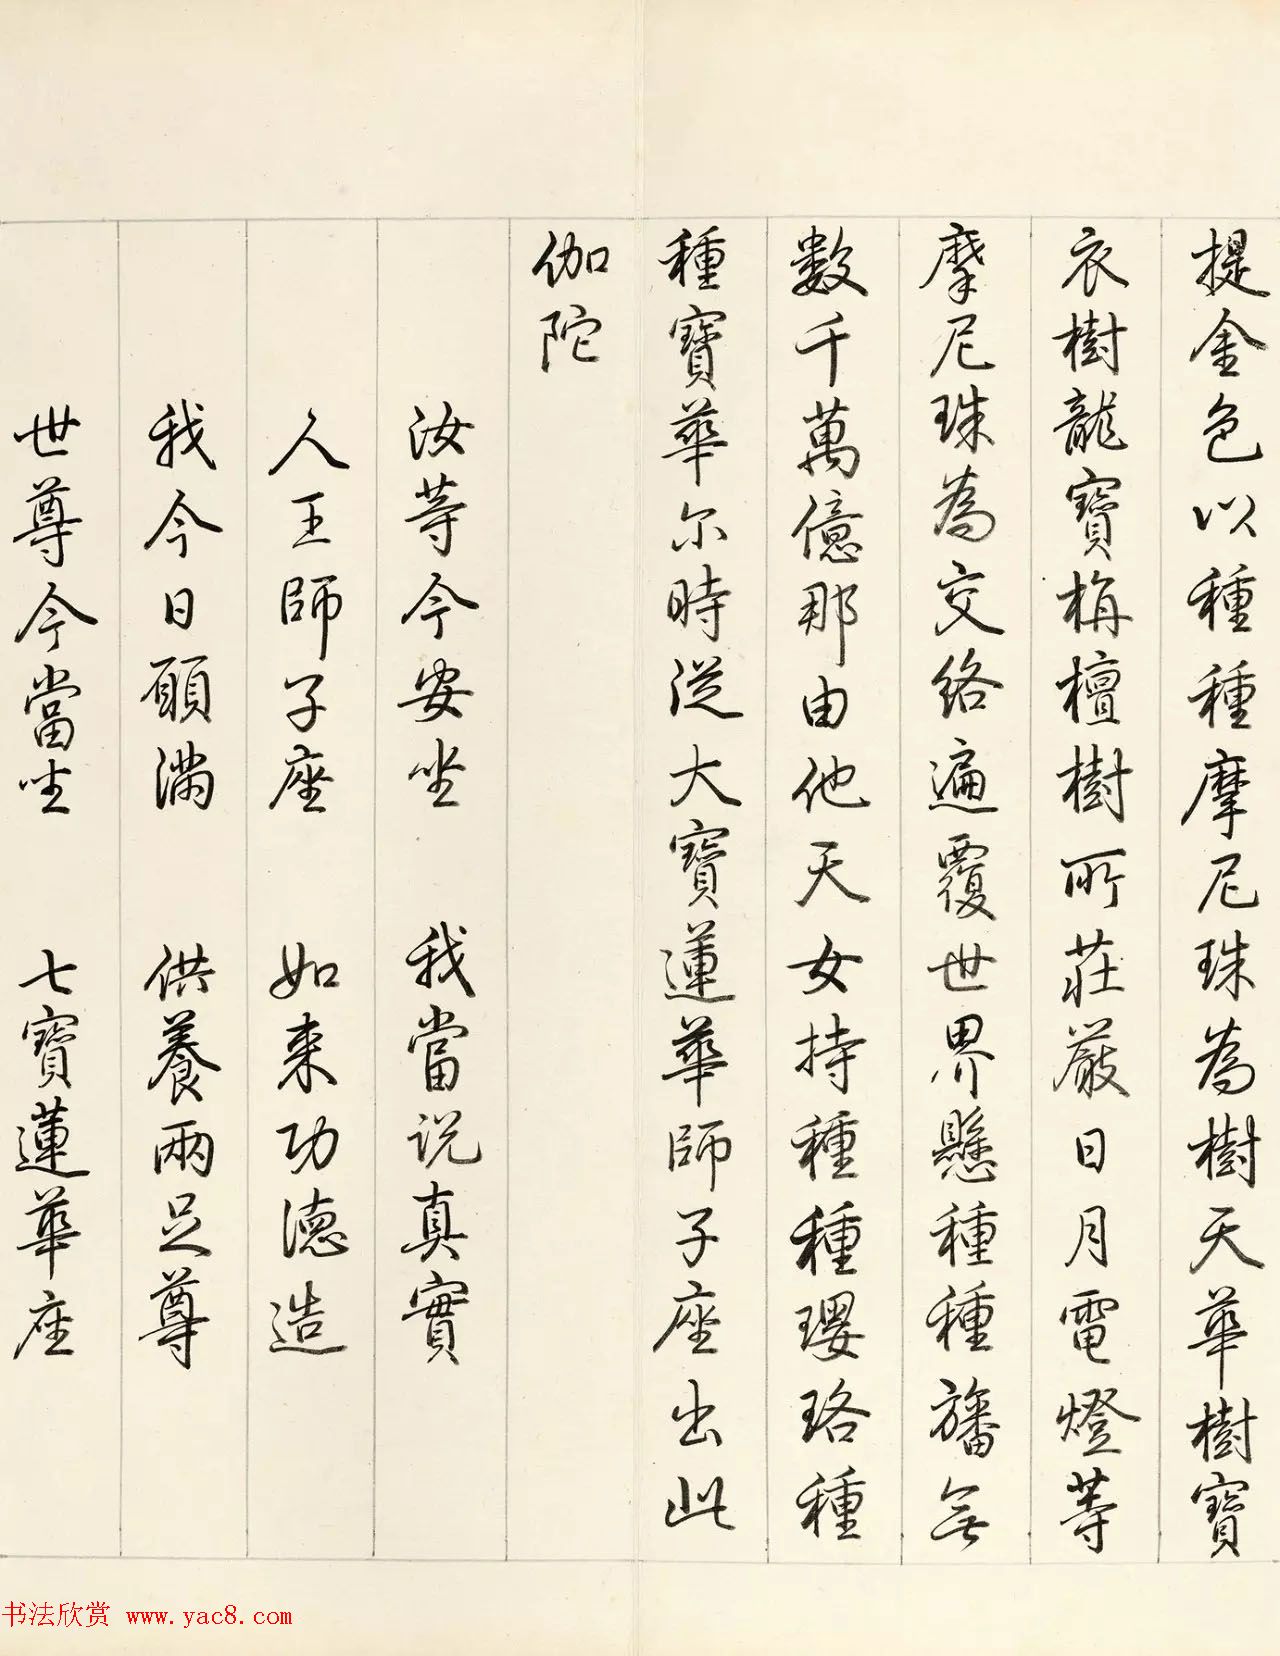 提金色以種種摩尼珠為樹天華樹寶
衣樹龍寶栴檀樹所莊嚴日月電燈等
摩尼珠為交絡遍覆世界懸種種旛無
數千萬億那由他天女持種種瓔珞種
種寶華尔時從大寶蓮華師子座出此
伽陀
汝等今安坐 我當说真實
人王師子座 如来功德造
我今日願滿 供養兩足尊
世尊今當坐 七寶蓮華座
书法欣赏 www.yac8.com